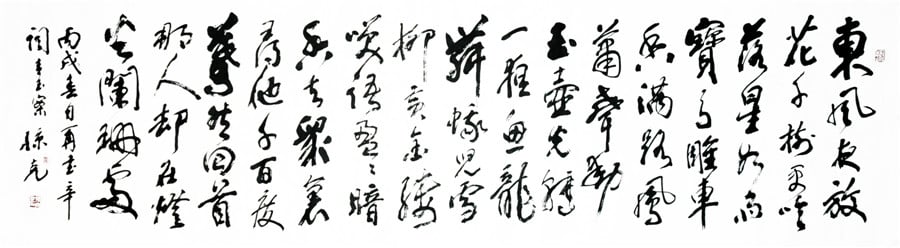 東風夜放
花千樹更吹
落星如雨
寶馬雕車
香滿路鳳
簫聲動
玉壺光轉
一夜魚龍
舞蛾兒雪
柳黃金縷
笑語盈〻暗
香去衆裏
尋他千百度
驀然回首
那人却在燈
火闌珊處
丙戌春月再書辛
詞青玉案